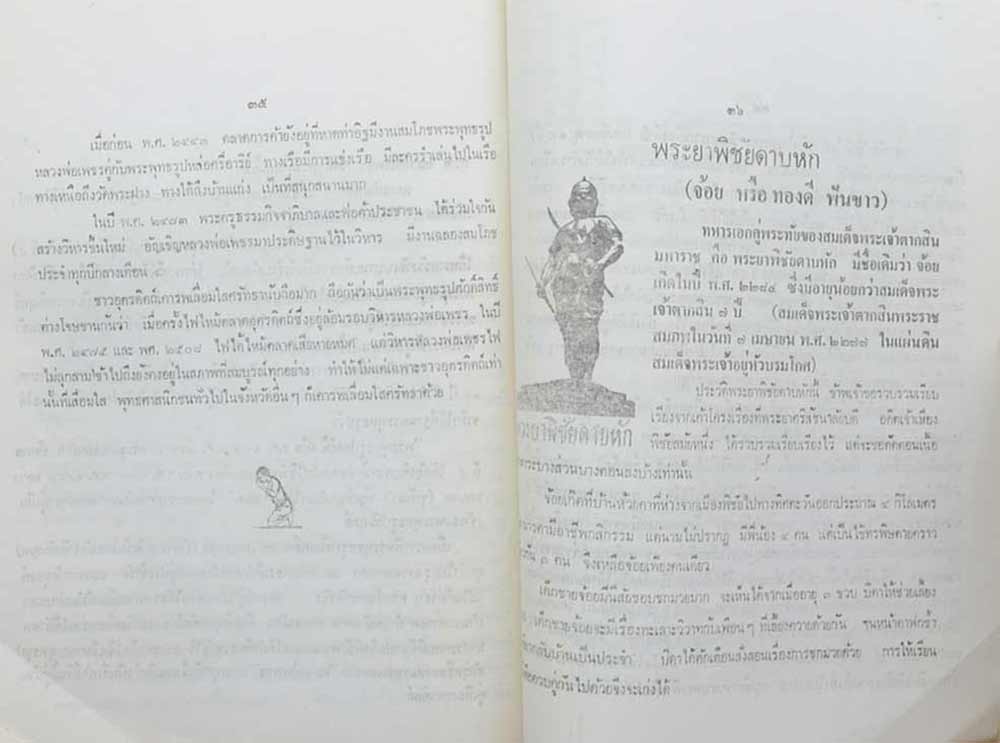 ๓๕
เมื่อก่อน พ.ศ. ๒๔๔๓ ตลาดการค้ายังอยู่ที่หาดท่าอิฐมีงานสมโภชพระพุทธรูป
หลวงพ่อเพชรคู่กับพระพุทธรูปหล่อศรีอาริย์ ทางเรือมีการแข่งเรือ มีละครรำเล่นไปในเรือ
ทางเหนือถึงวัดพระฝาง ทางใต้ถึงบ้านแก่ง เป็นที่สนุกสนานมาก
ในปี พ.ศ. ๒๔๘๓ พระครูธรรมกิจจาภิบาลและพ่อค้าประชาชน ได้ร่วมใจกัน
สร้างวิหารขึ้นใหม่ อัญเชิญหลวงพ่อเพชรมาประดิษฐานไว้ในวิหาร มีงานฉลองสมโภช
ประจำทุกปีกลางเดือน ๔
ชาวอุตรดิตถ์เคารพเลื่อมใสศรัทธานับถือมาก ถือกันว่าเป็นพระพุทธรูปศักดิ์สิทธิ์
ต่างโจษขานกันว่า เมื่อครั้งไฟไหม้ตลาดอุตรดิตถ์ซึ่งอยู่ล้อมรอบวิหารหลวงพ่อเพชร ในปี
พ.ศ. ๒๔๗๕ และ พศ. ๒๕๐๘ ไฟได้ไหม้ตลาดเสียหายหมด แต่วิหารหลวงพ่อเพชรไฟ
ไม่ลุกลามเข้าไปถึงยังคงอยู่ในสภาพที่สมบูรณ์ทุกอย่าง ทำให้ไม่แต่เฉพาะชาวอุตรดิตถ์เท่า
นั้นที่เลื่อมใส พุทธศาสนิกชนทั่วไปในจังหวัดอื่น ๆ ก็เคารพเลื่อมใสศรัทธาด้วย
๓๖
พระยาพิชัยดาบหัก
(จ้อย หรือ ทองดี ฟันขาว)
ทหารเอกคู่พระทัยของสมเด็จพระเจ้าตากสิน
มหาราช คือ พระยาพิชัยดาบหัก มีชื่อเดิมว่า จ้อย
เกิดในปี พ.ศ. ๒๒๘๔ ซึ่งมีอายุน้อยกว่าสมเด็จพระ
เจ้าตากสิน ๗ ปี (สมเด็จพระเจ้าตากสินพระราช
สมภพในวันที่ ๗ เมษายน พ.ศ. ๒๒๗๗ ในแผ่นดิน
สมเด็จพระเจ้าอยู่หัวบรมโกศ)
ประวัติพระยาพิชัยดาบหักนี้ ข้าพเจ้าขอรวบรวมเรียบ
เรียงจากเค้าโครงเรื่องที่พระยาศรีสัชนาลัยบดี อดีตเจ้าเมือง
พิชัยสมัยหนึ่ง ได้รวบรวมเรียบเรียงไว้ แต่จะขอตัดตอนเนื้อ
พระยาพิชัยดาบหัก
สาระบางส่วนบางตอนลงบ้างเท่านั้น
จ้อยเกิดที่บ้านห้วยคาที่ห่างจากเมืองพิชัยไปทางทิศตะวันออกประมาณ ๔ กิโลเมตร
มารดามีอาชีพกสิกรรม แต่นามไม่ปรากฏ มีพี่น้อง ๔ คน แต่เป็นไข้ทรพิษตายคราว
กัน ๓ คน จึงเหลือจ้อยเพียงคนเดียว
เด็กชายจ้อยมีนิสัยชอบชกมวยมาก จะเห็นได้จากเมื่ออายุ ๓ ขวบ บิดาให้ช่วยเลี้ยง
เด็กชายจ้อยจะมีเรื่องทะเลาะวิวาทกับเพื่อน ๆ ที่เลี้ยงควายด้วยกัน จนหน้าตาฟกช้ำ
กลับบ้านเป็นประจำ บิดาได้ตักเตือนสั่งสอนเรื่องการชกมวยด้วย การให้เรียน
ควบคู่กันไปด้วยจึงจะเก่งได้